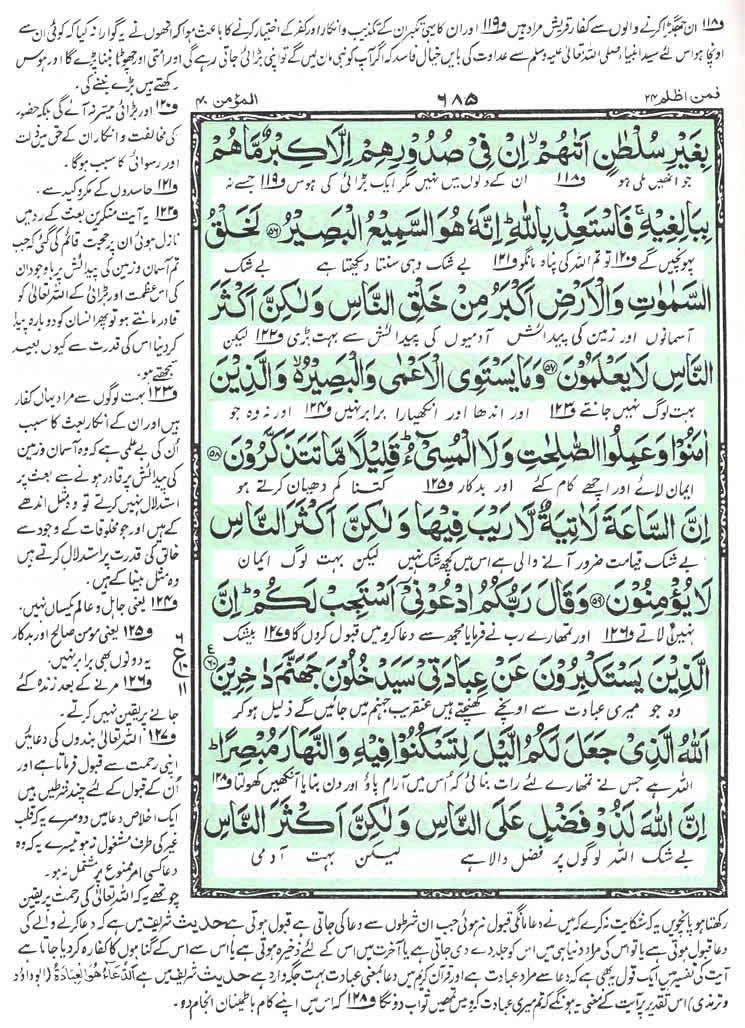 و۱۱۸ ان جھگڑا کرنے والوں سے کفار قریش مراد ہیں و۱۱۹ اور ان کا یہی تکبر ان کے تکذیب و انکار اور کفر کے اختیار کرنے کا باعث ہوا کہ انھوں نے یہ گوارا نہ کیا کہ کوئی ان سے
اونچا ہو اس لئے سید انبیاء (صلی اللہ تعالیٰ علیہ وسلم) سے عداوت کی بایں خیال فاسد کہ اگر آپ کو نبی مان لیں گے تو اپنی بڑائی جاتی رہے گی اور امتی اور چھوٹا بننا پڑے گا اور ہوس
رکھتے ہیں بڑے بننے کی۔
فمن اظلم ۲۴
۶۸۵
المؤمن ۴۰
بِغَیْرِ سُلْطٰنٍ اَتٰىهُمْ ۙ اِنْ فِیْ صُدُوْرِهِمْ اِلَّا كِبْرٌ مَّا هُمْ
جو انھیں ملی ہو و۱۱۸ ان کے دلوں میں نہیں مگر ایک بڑائی کی ہوس و۱۱۹ جسے نہ
بِبَالِغِیْهِ ۚ فَاسْتَعِذْ بِاللّٰهِ ؕ اِنَّهٗ هُوَ السَّمِیْعُ الْبَصِیْرُ ﴿۵۶﴾ لَخَلْقُ
پہونچیں گے و۱۲۰ تو تم اللہ کی پناہ مانگو و۱۲۱ بے شک وہی سنتا دیکھتا ہے بے شک
السَّمٰوٰتِ وَ الْاَرْضِ اَكْبَرُ مِنْ خَلْقِ النَّاسِ وَ لٰكِنَّ اَكْثَرَ
آسمانوں اور زمین کی پیدائش آدمیوں کی پیدائش سے بہت بڑی و۱۲۲ لیکن
النَّاسِ لَا یَعْلَمُوْنَ ﴿۵۷﴾ وَ مَا یَسْتَوِی الْاَعْمٰى وَ الْبَصِیْرُ ۙ۬ وَ الَّذِیْنَ
بہت لوگ نہیں جانتے و۱۲۳ اور اندھا اور انکھیارا برابر نہیں و۱۲۴ اور نہ وہ جو
اٰمَنُوْا وَ عَمِلُوا الصّٰلِحٰتِ وَ لَا الْمُسِیْٓءُ ؕ قَلِیْلًا مَّا تَتَذَكَّرُوْنَ ﴿۵۸﴾
ایمان لائے اور اچھے کام کئے اور بدکار و۱۲۵ کتنا کم دھیان کرتے ہو
اِنَّ السَّاعَةَ لَاٰتِیَةٌ لَّا رَیْبَ فِیْهَا وَ لٰكِنَّ اَكْثَرَ النَّاسِ
بے شک قیامت ضرور آنے والی ہے اس میں کچھ شک نہیں لیکن بہت لوگ ایمان
لَا یُؤْمِنُوْنَ ﴿۵۹﴾ وَ قَالَ رَبُّكُمُ ادْعُوْنِیْۤ اَسْتَجِبْ لَكُمْ ؕ اِنَّ
نہیں لاتے و۱۲۶ اور تمھارے رب نے فرمایا مجھ سے دعا کرو میں قبول کروں گا و۱۲۷ بیشک
الَّذِیْنَ یَسْتَكْبِرُوْنَ عَنْ عِبَادَتِیْ سَیَدْخُلُوْنَ جَهَنَّمَ دٰخِرِیْنَ ﴿۶۰﴾
وہ جو میری عبادت سے اونچے کھنچتے ہیں عنقریب جہنم میں جائیں گے ذلیل ہو کر
اَللّٰهُ الَّذِیْ جَعَلَ لَكُمُ الَّیْلَ لِتَسْكُنُوْا فِیْهِ وَ النَّهَارَ مُبْصِرًا ؕ
اللہ ہے جس نے تمھارے لئے رات بنائی کہ اس میں آرام پاؤ اور دن بنایا آنکھیں کھولتا و۱۲۸
اِنَّ اللّٰهَ لَذُوْ فَضْلٍ عَلَى النَّاسِ وَ لٰكِنَّ اَكْثَرَ النَّاسِ
بے شک اللہ لوگوں پر فضل والا ہے لیکن بہت آدمی
و۱۲۰ اور بڑائی میسر نہ آئے گی بلکہ حضور
کی مخالفت و انکار ان کے حق میں ذلت
اور رسوائی کا سبب ہوگا۔
و۱۲۱ حاسدوں کے مکر و کید سے۔
و۱۲۲ یہ آیت منکرین بعث کے رد میں
نازل ہوئی ان پر حجت قائم کی گئی کہ جب
تم آسمان و زمین کی پیدائش پر باوجود ان
کی اس عظمت اور بڑائی کے اللہ تعالیٰ کو
قادر مانتے ہو تو پھر انسان کو دوبارہ پیدا
کر دینا اس کی قدرت سے کیوں بعید
سمجھتے ہو۔
و۱۲۳ بہت لوگوں سے مراد یہاں کفار
ہیں اور ان کے انکار بعث کا سبب
ان کی بے علمی ہے کہ وہ آسمان و زمین
کی پیدائش پر قادر ہونے سے بعث پر
استدلال نہیں کرتے تو وہ مثل اندھے
کے ہیں اور جو مخلوقات کے وجود سے
خالق کی قدرت پر استدلال کرتے ہیں
وہ مثل بینا کے ہیں۔
و۱۲۴ یعنی جاہل و عالم یکساں نہیں۔
و۱۲۵ یعنی مومن صالح اور بدکار
یہ دونوں بھی برابر نہیں۔
و۱۲۶ مرنے کے بعد زندہ کئے
جانے پر یقین نہیں کرتے۔
و۱۲۷ اللہ تعالیٰ بندوں کی دعائیں
اپنی رحمت سے قبول فرماتا ہے اور
ان کے قبول کے لئے چند شرطیں ہیں
ایک اخلاص دعا میں دوسرے یہ کہ قلب
غیر کی طرف مشغول نہ ہو تیسرے یہ کہ وہ
دعا کسی امر ممنوع پر مشتمل نہ ہو۔
چوتھے یہ کہ اللہ تعالیٰ کی رحمت پر یقین
رکھتا ہو پانچویں یہ کہ شکایت نہ کرے کہ میں نے دعا مانگی قبول نہ ہوئی جب ان شرطوں سے دعا کی جاتی ہے قبول ہوتی ہے حدیث شریف میں ہے کہ دعا کرنے والے کی
دعا قبول ہوتی ہے یا تو اس کی مراد دنیا ہی میں اس کو جلد دے دی جاتی ہے یا آخرت میں اس کے لئے ذخیرہ ہوتی ہے یا اس سے اس کے گناہوں کا کفارہ کر دیا جاتا ہے
آیت کی تفسیر میں ایک قول یہ بھی ہے کہ دعا سے مراد عبادت ہے اور قرآن کریم میں دعا بمعنی عبادت بہت جگہ وارد ہے حدیث شریف میں ہے اَلدُّعَاءُ هُوَ الْعِبَادَةُ (ابوداؤد
و ترمذی) اس تقدیر پر آیت کے معنی یہ ہونگے کہ تم میری عبادت کرو میں تمھیں ثواب دونگا و۱۲۸ کہ اس میں اپنے کام باطمینان انجام دو۔